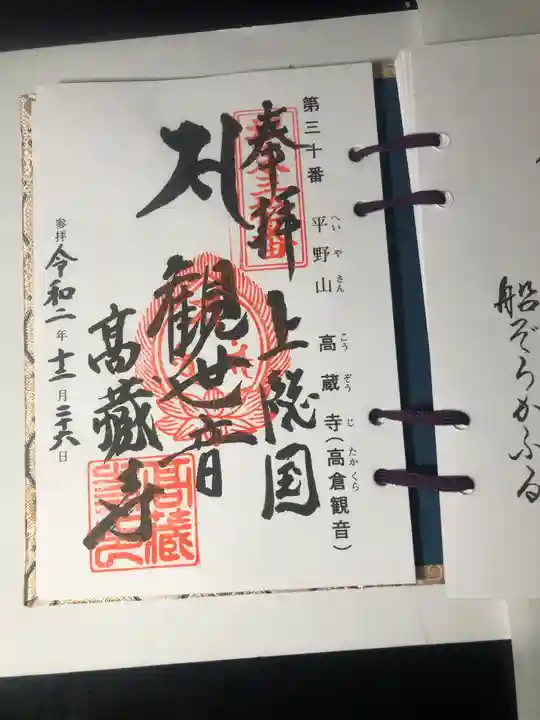 船ぞろかふる
第三十番 平野山 高蔵寺(高倉観音)
へいやさん こうぞうじ たかくら
奉拝 上総国
観世音
高蔵寺
参拝 令和二年十二月二十六日